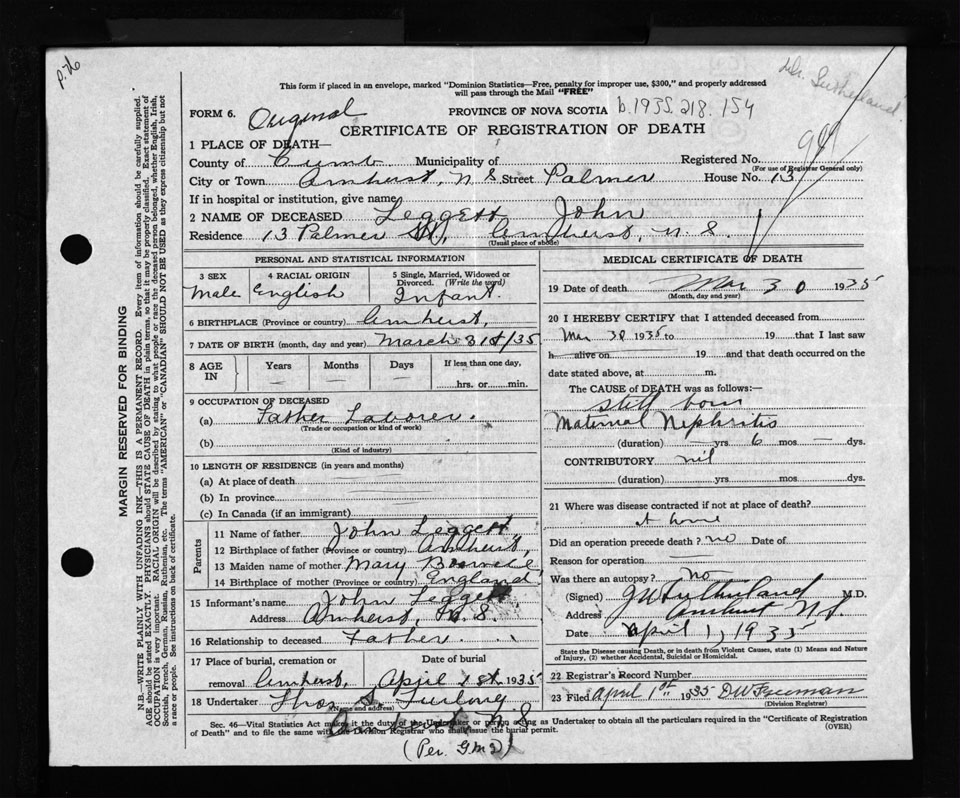 P. 76
This form if placed in an envelope, marked "Dominion Statistics—Free, penalty for improper use, $300," and properly addressed
will pass through the Mail "FREE"
Dr. Sutherland.
FORM 6. Original PROVINCE OF NOVA SCOTIA b.1955.218.154
CERTIFICATE OF REGISTRATION OF DEATH
1 PLACE OF DEATH—
County of Cumb Municipality of Registered No.
(For use of Registrar General only)
City or Town Amherst, N S. Street Palmer House No. 13
If in hospital or institution, give name
2 NAME OF DECEASED Leggett John
Residence 13 Palmer St, Amherst, N. S.
(Usual place of abode)
PERSONAL AND STATISTICAL INFORMATION
3 SEX 4 RACIAL ORIGIN 5 Single, Married, Widowed or Divorced. (Write the word)
Male English Infant.
6 BIRTHPLACE (Province or country) Amherst,
7 DATE OF BIRTH (month, day and year) March 31st/35
8 AGE IN Years Months Days If less than one day,
hrs. or min.
9 OCCUPATION OF DECEASED
(a) Father Laborer.
(Trade or occupation or kind of work)
(b)
(Kind of industry)
10 LENGTH OF RESIDENCE (in years and months)
(a) At place of death
(b) In province
(c) In Canada (if an immigrant)
Parents
11 Name of father John Leggett,
12 Birthplace of father (Province or country) Amherst,
13 Maiden name of mother Mary
14 Birthplace of mother (Province or country) England
15 Informant's name John Leggett
Address Amherst, N. S.
16 Relationship to deceased Father.
17 Place of burial, cremation or Date of burial
removal Amherst, April 1st 1935
18 Undertaker Thos S. Furlong
(Name and address)
Amherst N. S
MEDICAL CERTIFICATE OF DEATH
19 Date of death Mar 30 1935
(Month, day and year)
20 I HEREBY CERTIFY that I attended deceased from
Mar 30 1935 to 19 that I last saw
h alive on 19 and that death occurred on the
date stated above, at m.
The CAUSE OF DEATH was as follows:—
still born
Maternal Nephritis
(duration) — yrs 6 mos — dys.
CONTRIBUTORY nil
(duration) yrs. mos. dys.
21 Where was disease contracted if not at place of death?
At home
Did an operation precede death? no Date of
Reason for operation
Was there an autopsy? No
(Signed) J W Sutherland M.D.
Address Amherst N.S.
Date April 1, 1935
State the Disease causing Death, or in death from Violent Causes, state (1) Means and Nature
of Injury, (2) whether Accidental, Suicidal or Homicidal.
22 Registrar's Record Number
23 Filed April 1st 1935 DW Freeman
(Division Registrar)
Sec. 46—Vital Statistics Act makes it the duty of the Undertaker or person acting as Undertaker to obtain all the particulars required in the "Certificate of Registration
of Death" and to file the same with the Division Registrar who shall issue the burial permit. (OVER)
MARGIN RESERVED FOR BINDING
N.B.—WRITE PLAINLY WITH UNFADING INK—THIS IS A PERMANENT RECORD. Every item of information should be carefully supplied.
AGE should be stated EXACTLY. PHYSICIANS should STATE CAUSE OF DEATH in plain terms, so that it may be properly classified. Exact statement of
OCCUPATION is very important. RACIAL ORIGIN will be described by stating to what people or race the deceased person belonged, whether English, Irish,
Scottish, French, German, Russian, Ruthenian, etc. The terms "AMERICAN" or "CANADIAN" SHOULD NOT BE USED as they express citizenship but not
a race or people. See instructions on back of certificate.